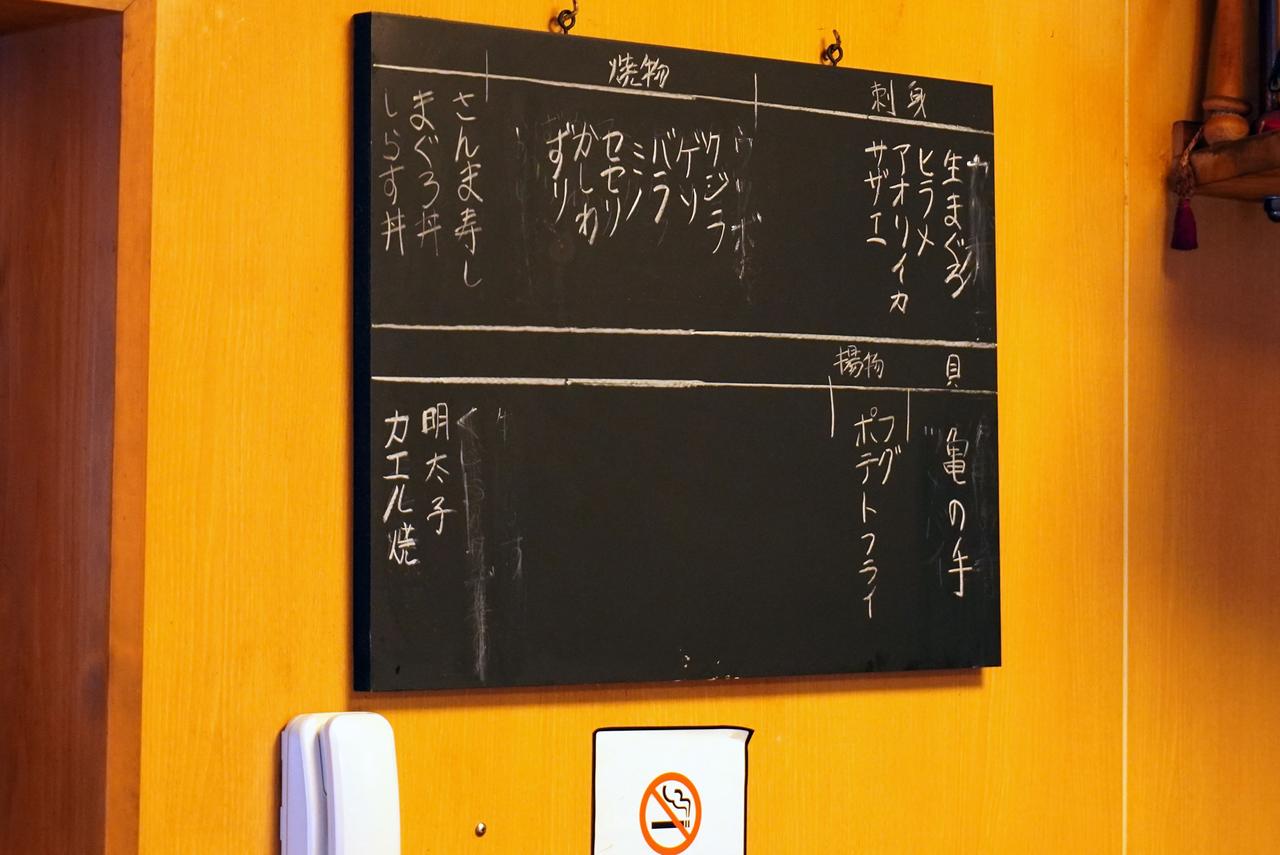 刺身
生まぐろ
ヒラメ
アオリイカ
サザエ
焼物
クジラ
ゲソ
バラ
ミノ
セセリ
かしわ
ずり
さんま寿し
まぐろ丼
しらす丼
貝
亀の手
揚物
フグ
ポテトフライ
明太子
カエル焼